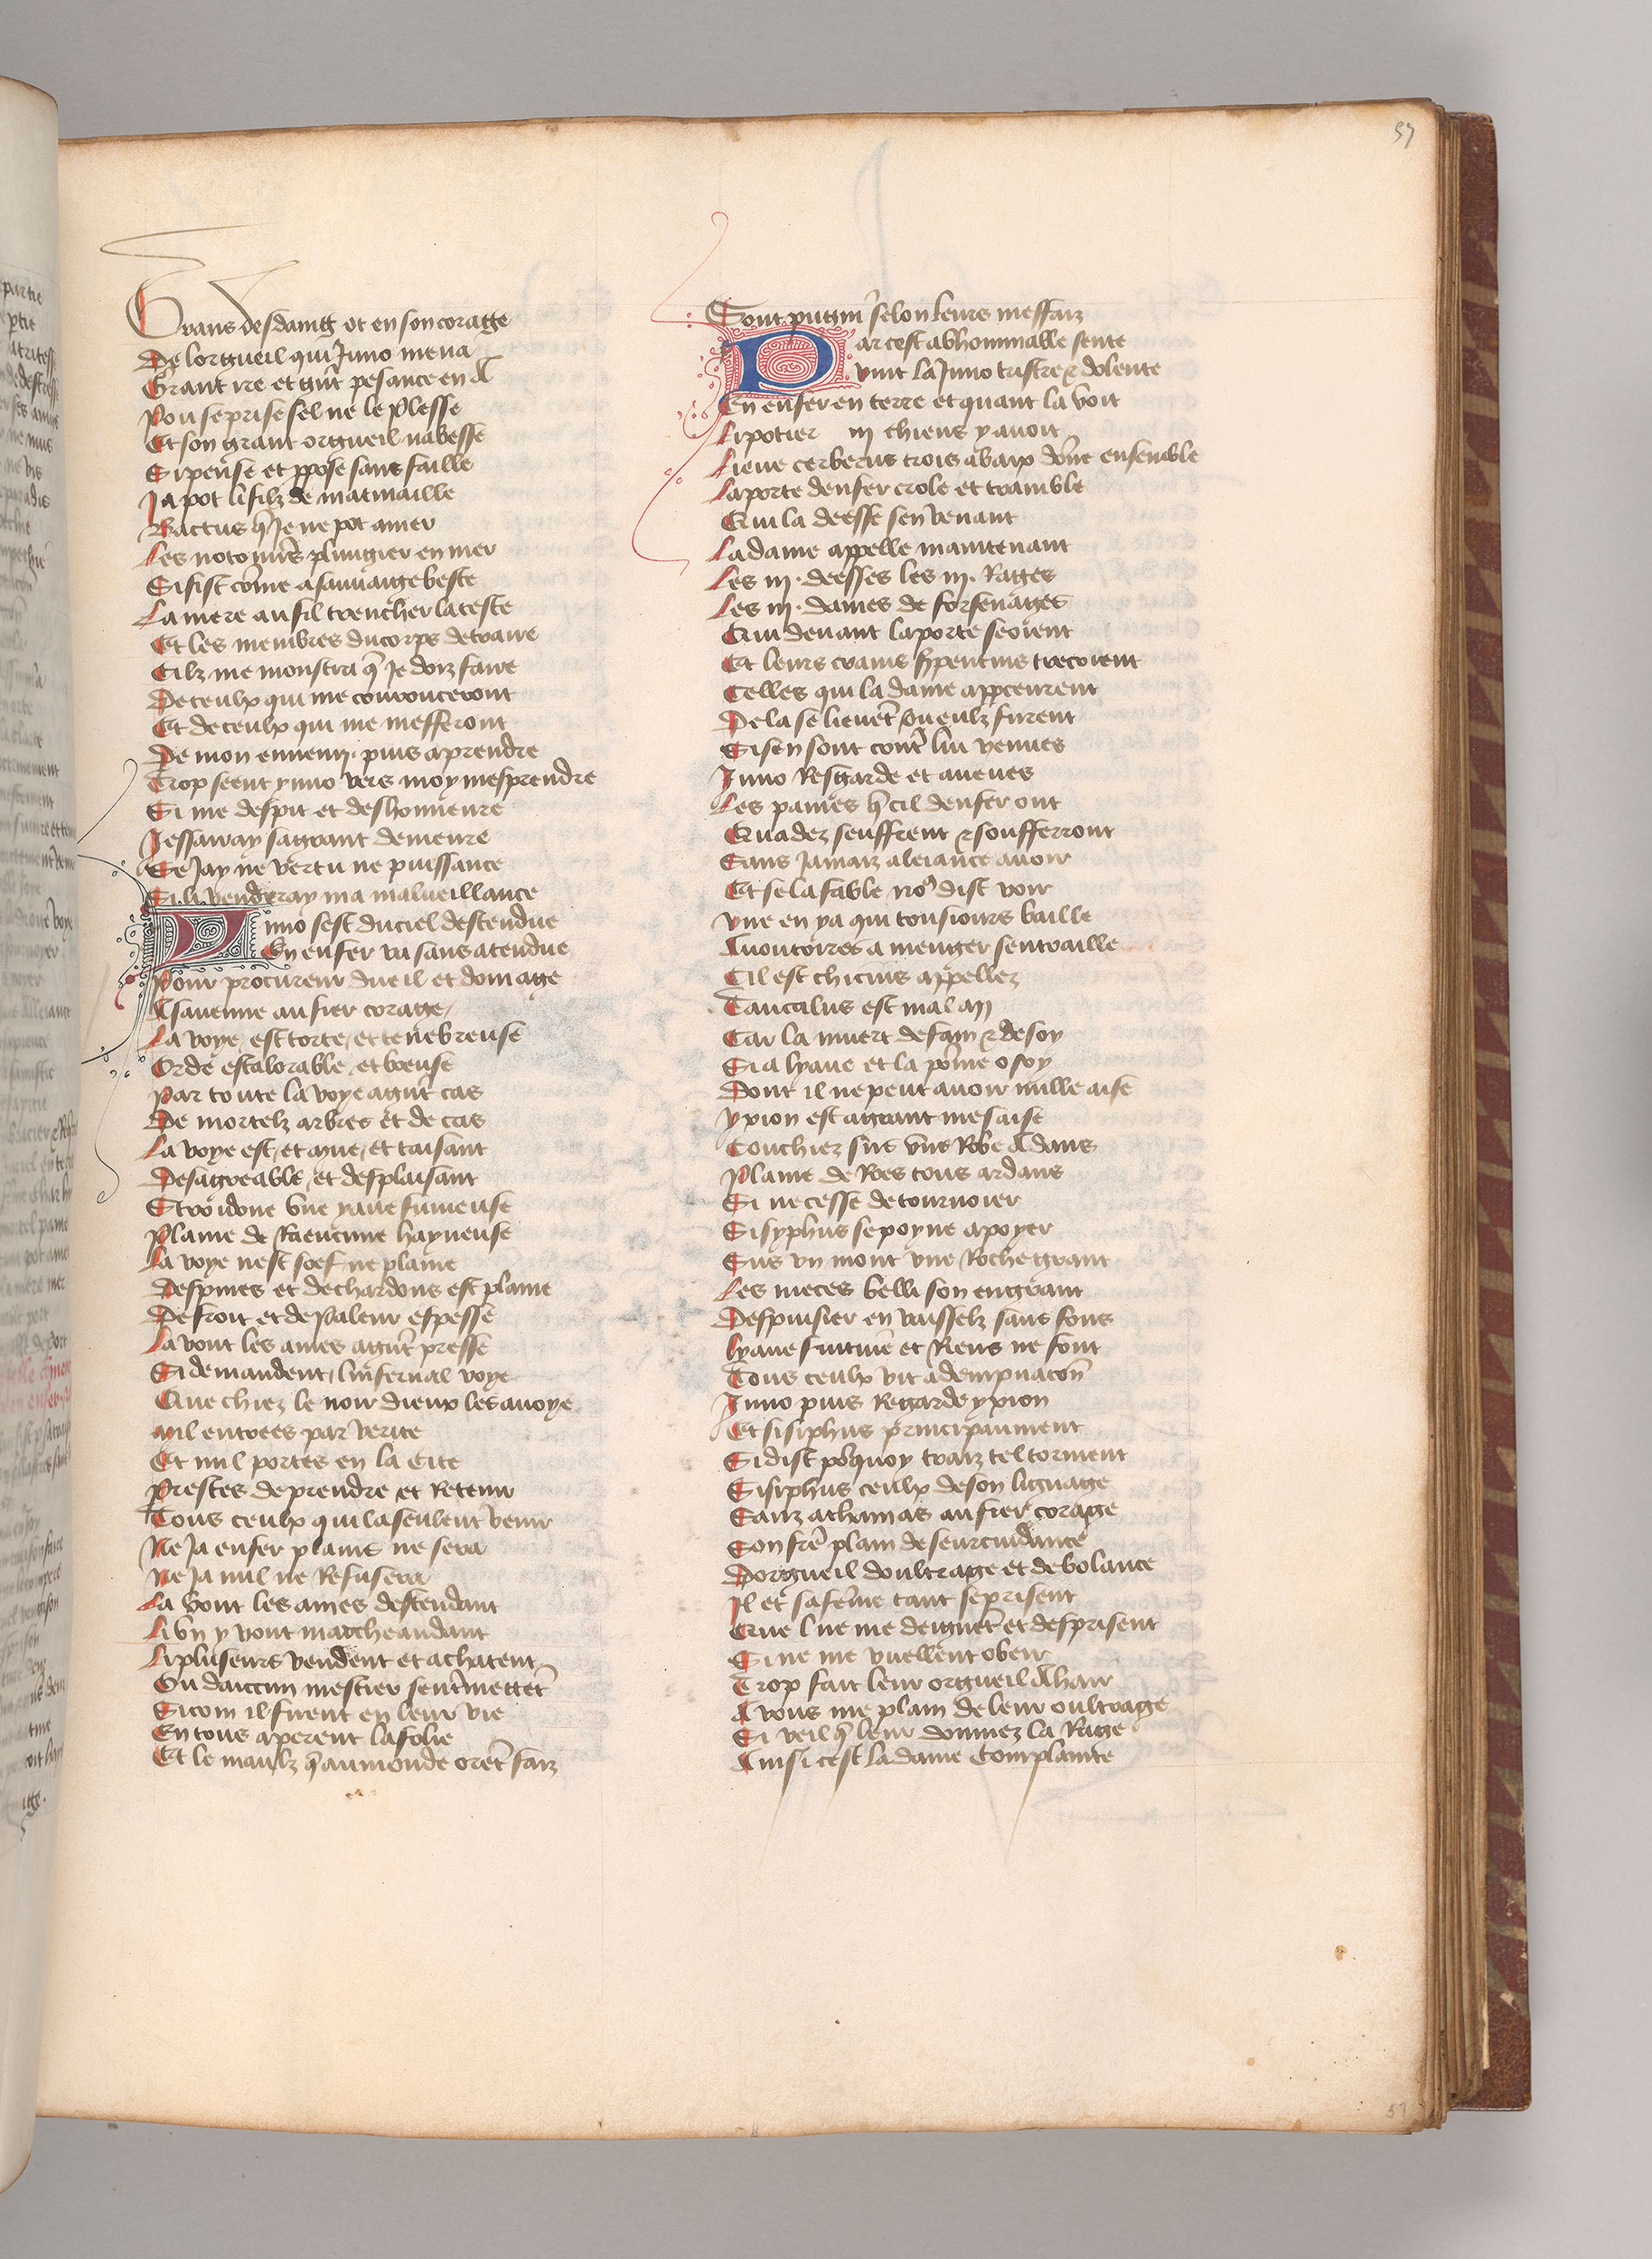 57
Grans desdaing ot en son corage
De lorgueil qui Juno mena
Grant ire et gnt pesance en a
Pou se prise sel ne le plesse
Et son grant orgueil nabesse
Si pense et ppose sans faille
Ja pot li filz de ma maille
Bactus q Je ne pot amer
Les notonnrs plungier en mer
Si fist come a sauuaige beste
La mere au fil trencher la teste
Et les membres du corps detraire
Cilz me monstra q Je doiz faire
De ceulx qui me courouceront
Et de ceulx qui me mefferont
De mon ennemy puis aprendre
Trop seent yuno vers moy mesprendre
Si me despit et deshonneure
Jessairay sa grant demeure
Se Jay ne vertu ne puissance
Si li venderay ma malueillance
Juno sest du ciel destendue
En enfer va sans atendue
Pour procurer dueil et domage
A sauenne au fier corage
La voye est torte et tenebreuse
Orde est alorable et
Par toute la voye a gnt cas
De mortelz arbres et de cas
La voye est et mue et taisant
Desagreable et desplaisant
Et troidone vne yaue fumeuse
Plaine de Raencune hayneuse
La voye nest soef ne plaine
Despines et de chardons est plaine
De froit et de paleur espesse
La vont les ames a gnt presse
Si demandent linfernal voye
Que chiez le noir dieux les auoye
Mil entrees par verite
Et mil portes en la cite
Prestes de prendre et Retenir
Tous ceulx qui la seulent venir
Ne Ja enfer plains ne sera
Ne Ja nul ne Refusera
La vont les ames destendant
Li vn y vont marcheandant
Li pluseurs vendent et achatent
Ou daucun mestier sentmettet
Sicom il firent en leur vie
En tous aperent la folie
Et le maulz q au monde oret faiz
Sont pugni selon leurs meffaiz
Par cest abhominable sente
vint la Juno tristre et dolente
En enfer en terre et quant la voit
Li potier iij chiens y auoit
Lieue cerberus trois abaix done ensemble
La porte denfer crole et tramble
Qui la deesse sen venant
La dame appelle maintenant
Les iij deesses les iij Rages
Les iij dames de forsenages
Qui deuant la porte seoient
Et leurs crains spentins trecoient
Celles qui la dame appceurent
De la se lieuet ou eulz furent
Si sen sont contr lui venues
Juno Resgarde et aueues
Les paines q cil denfer ont
Quadez seuffrent et soufferront
Sans Jamaiz aleiance auoir
Et se la fable nos dist voir
vne en ya qui tousiours baille
A voutoirres a menger sentraille
Cil est chicius appellez
Tancalus est mal
Car la muert de fain et de soy
Si a lyaue et la pome o soy
Dont il ne peut auoir nulle aise
yxion est a grant mesaise
Couchiez sus vne Roe dans
Plaine de Roes tous ardans
Si ne cesse de tournoier
Sisyphus se poyne apoyer
Sus vn mont vne Roche grant
Les nieces belli son en grant
Despuisier en vaisselz sans fons
Lyaue et Riens ne font
Tous ceulx vit a dempnacon
Juno puis Regarde yxion
Et sisiphus principaument
Si dist pourquoy traiz tel torment
Sisiphus ceulx de son lignage
Sanz athamas au fier corage
Son fre plain de seurcuidance
Dorgueil doultrage et de bolance
Il et sa feme tant se prisent
Que lue me deignet et desprisent
Si ne me vuellent obeir
Trop fait leur orgueil a hair
A vous me plain de leur oultrage
Si veil q leur donnez la Rage
Ainsi cest la dame complainte
57